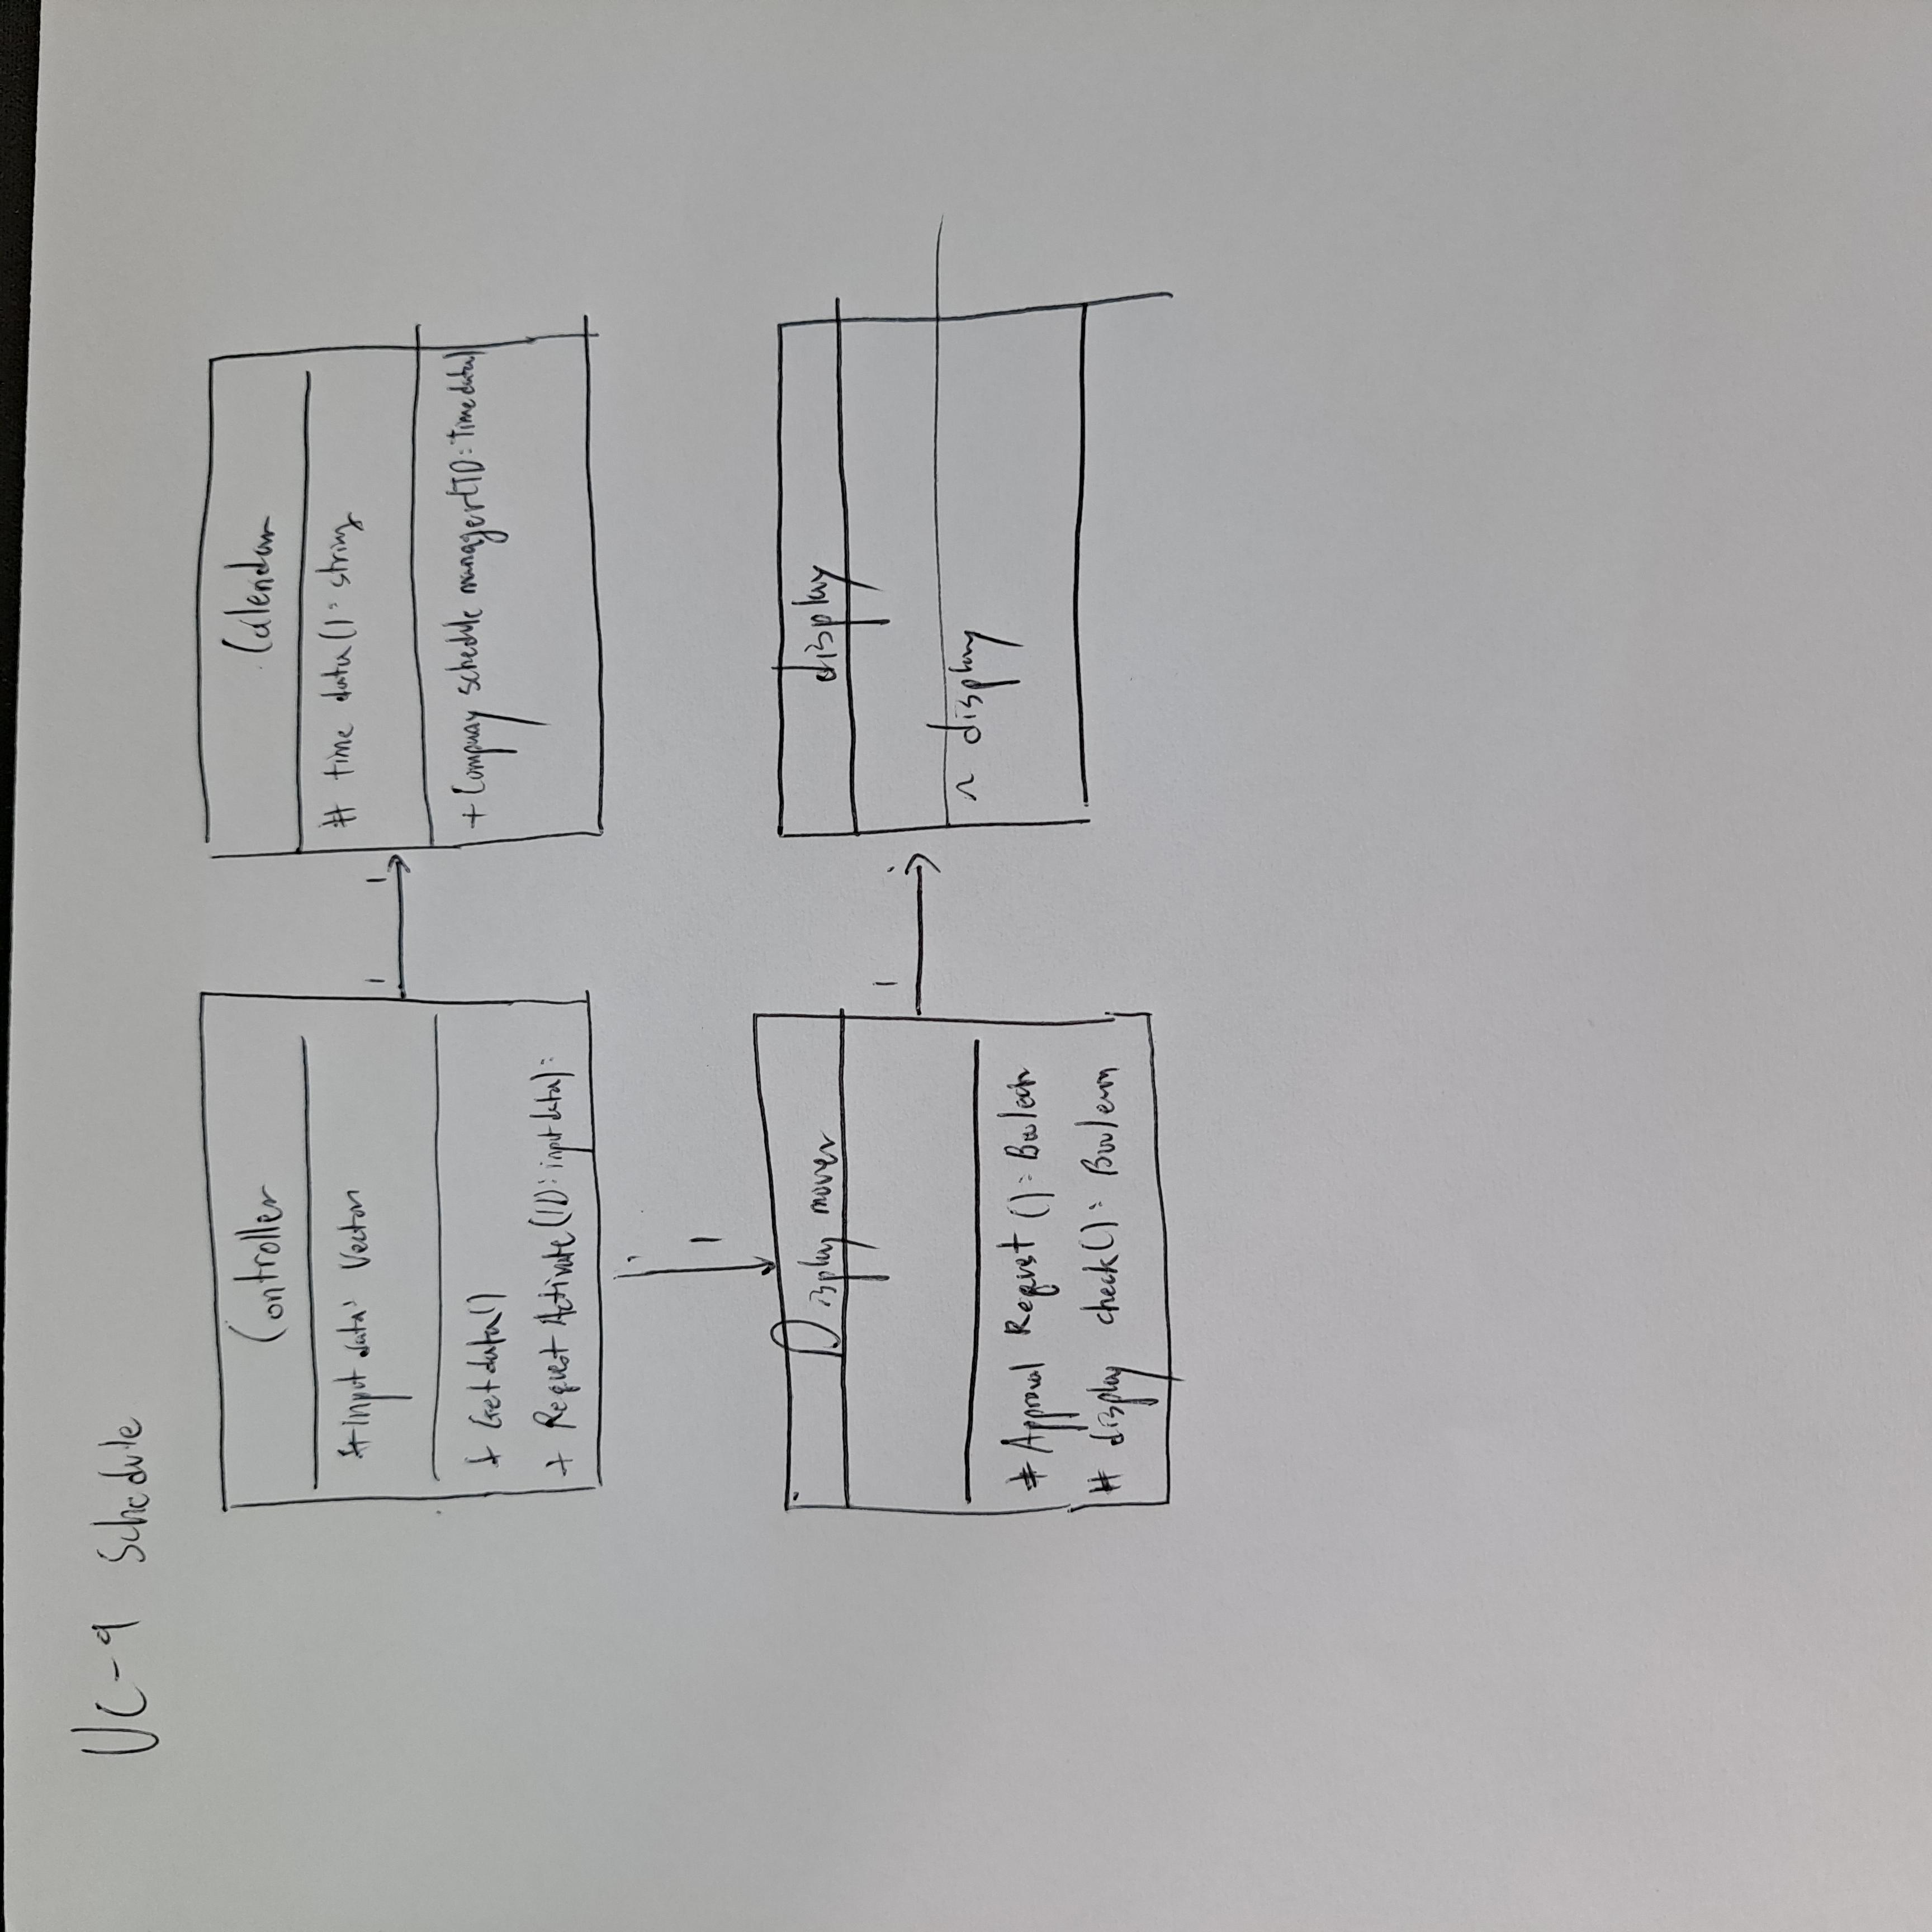 UC-9 Schedule
Controller
#input data: Vector
+ Getdata()
+ Request Activate (ID: inputdata):
1 1
Calendar
# time data(): string
+ Company schedule manager(ID: timedata)
1
1
Display mover
# Approval Request (): Boolean
# display check(): Boolean
1 1
display
~ display